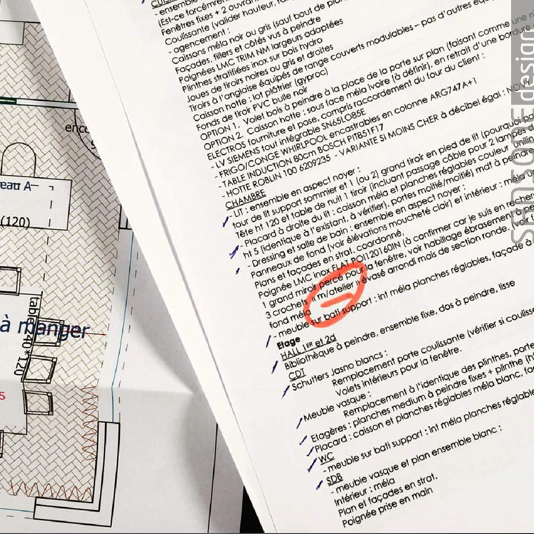 Façades, fillers et côtés vus à peindre
Poignées LMC TRIM Nm largeurs adaptées
Plinthes stratifiées inox sur bois hydro
Joues de tiroirs noires ou gris et droites
Tiroirs à l'anglaise équipés de range couverts modulables – pas d'autres
Caisson hotte : int plâtrier (gyproc)
Fonds de tiroir PVC bulle noir
OPTION 1. Volet bois à peindre à la place de la porte sur plan (faisant comme une
OPTION 2. Caisson hotte : sous face méla ivoire (à définir), en retrait d'une bordure
ELECTROS fourniture et pose, compris raccordement du four du client :
- LV SIEMENS tout intégrable SN65L085E
- FRIGO/CONGE WHIRLPOOL encastrables en colonne ARG747A+1
- TABLE INDUCTION 80cm BOSCH PIT851F17
- HOTTE ROBLIN 100 6209235 - VARIANTE SI MOINS CHER à décibel égal :
CHAMBRE
- LIT : ensemble en aspect noyer :
tour de lit support sommier et 1 (ou 2) grand tiroir en pied de lit
Tête ht 120 et table de nuit 1 tiroir (incluant passage câble pour 2 lampes
- Placard à droite du lit : caisson méla et planches réglables couleur
ht 5 (identique à l'existant, à vérifier), portes mollié/mollié) mat à
- Dressing et salle de bain : ensemble en aspect noyer :
Panneaux de fond (voir élévations moucheté clair) et intérieur : méla
Plans et façades en strat. coordonné.
Poignée LMC inox FLAT PO1120160IN (à confirmer car je suis en
1 grand miroir percé pour la fenêtre, voir habillage ébrasement
3 crochets « m/atelier » évasé arrondi mais de section ronde.
fond méla
- meuble sur bati support : int méla planches réglables, façade à
Etage
HALL 1er et 2d
Bibliothèque à peindre, ensemble fixe, dos à peindre, lisse
CD1
Schutters Jasno blancs :
Remplacement porte coulissante (vérifier si
Volets intérieurs pour la fenêtre.
Meuble vasque :
Remplacement à l'identique des plinthes,
Etagères : planches medium à peindre fixes + plinthe
Placard : caisson et planches réglables méla blanc,
WC
- meuble sur bati support : int méla planches
SDB
- meuble vasque et plan ensemble blanc :
Intérieur : méla
Plan et façades en strat.
Poignée prise en main
(120)
à manger
table 240*120